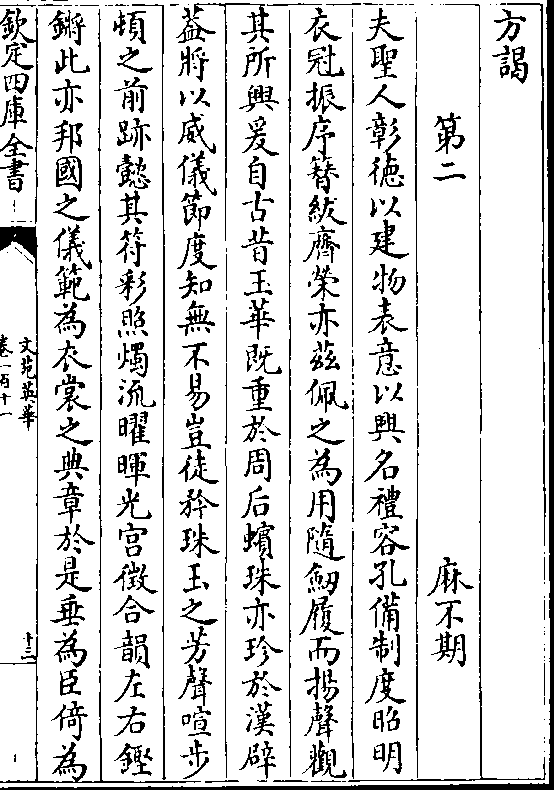 方謁
第二 麻不期
夫聖人彰徳以建物表意以興名禮容孔備制度昭明
衣冠振序簪紱齊榮亦茲佩之為用隨劒履而揚聲觀
其所興爰自古昔玉華既重於周后蠙珠亦珍於漢辟
葢將以威儀節度知無不易豈徒矜珠玉之芳聲喧步
頓之前跡懿其符彩照燭流曜暉光宫徵合韻左右鏗
鏘此亦邦國之儀範為衣裳之典章於是垂為臣倚為
欽定四庫全書
文苑英華
卷一百十一
十三